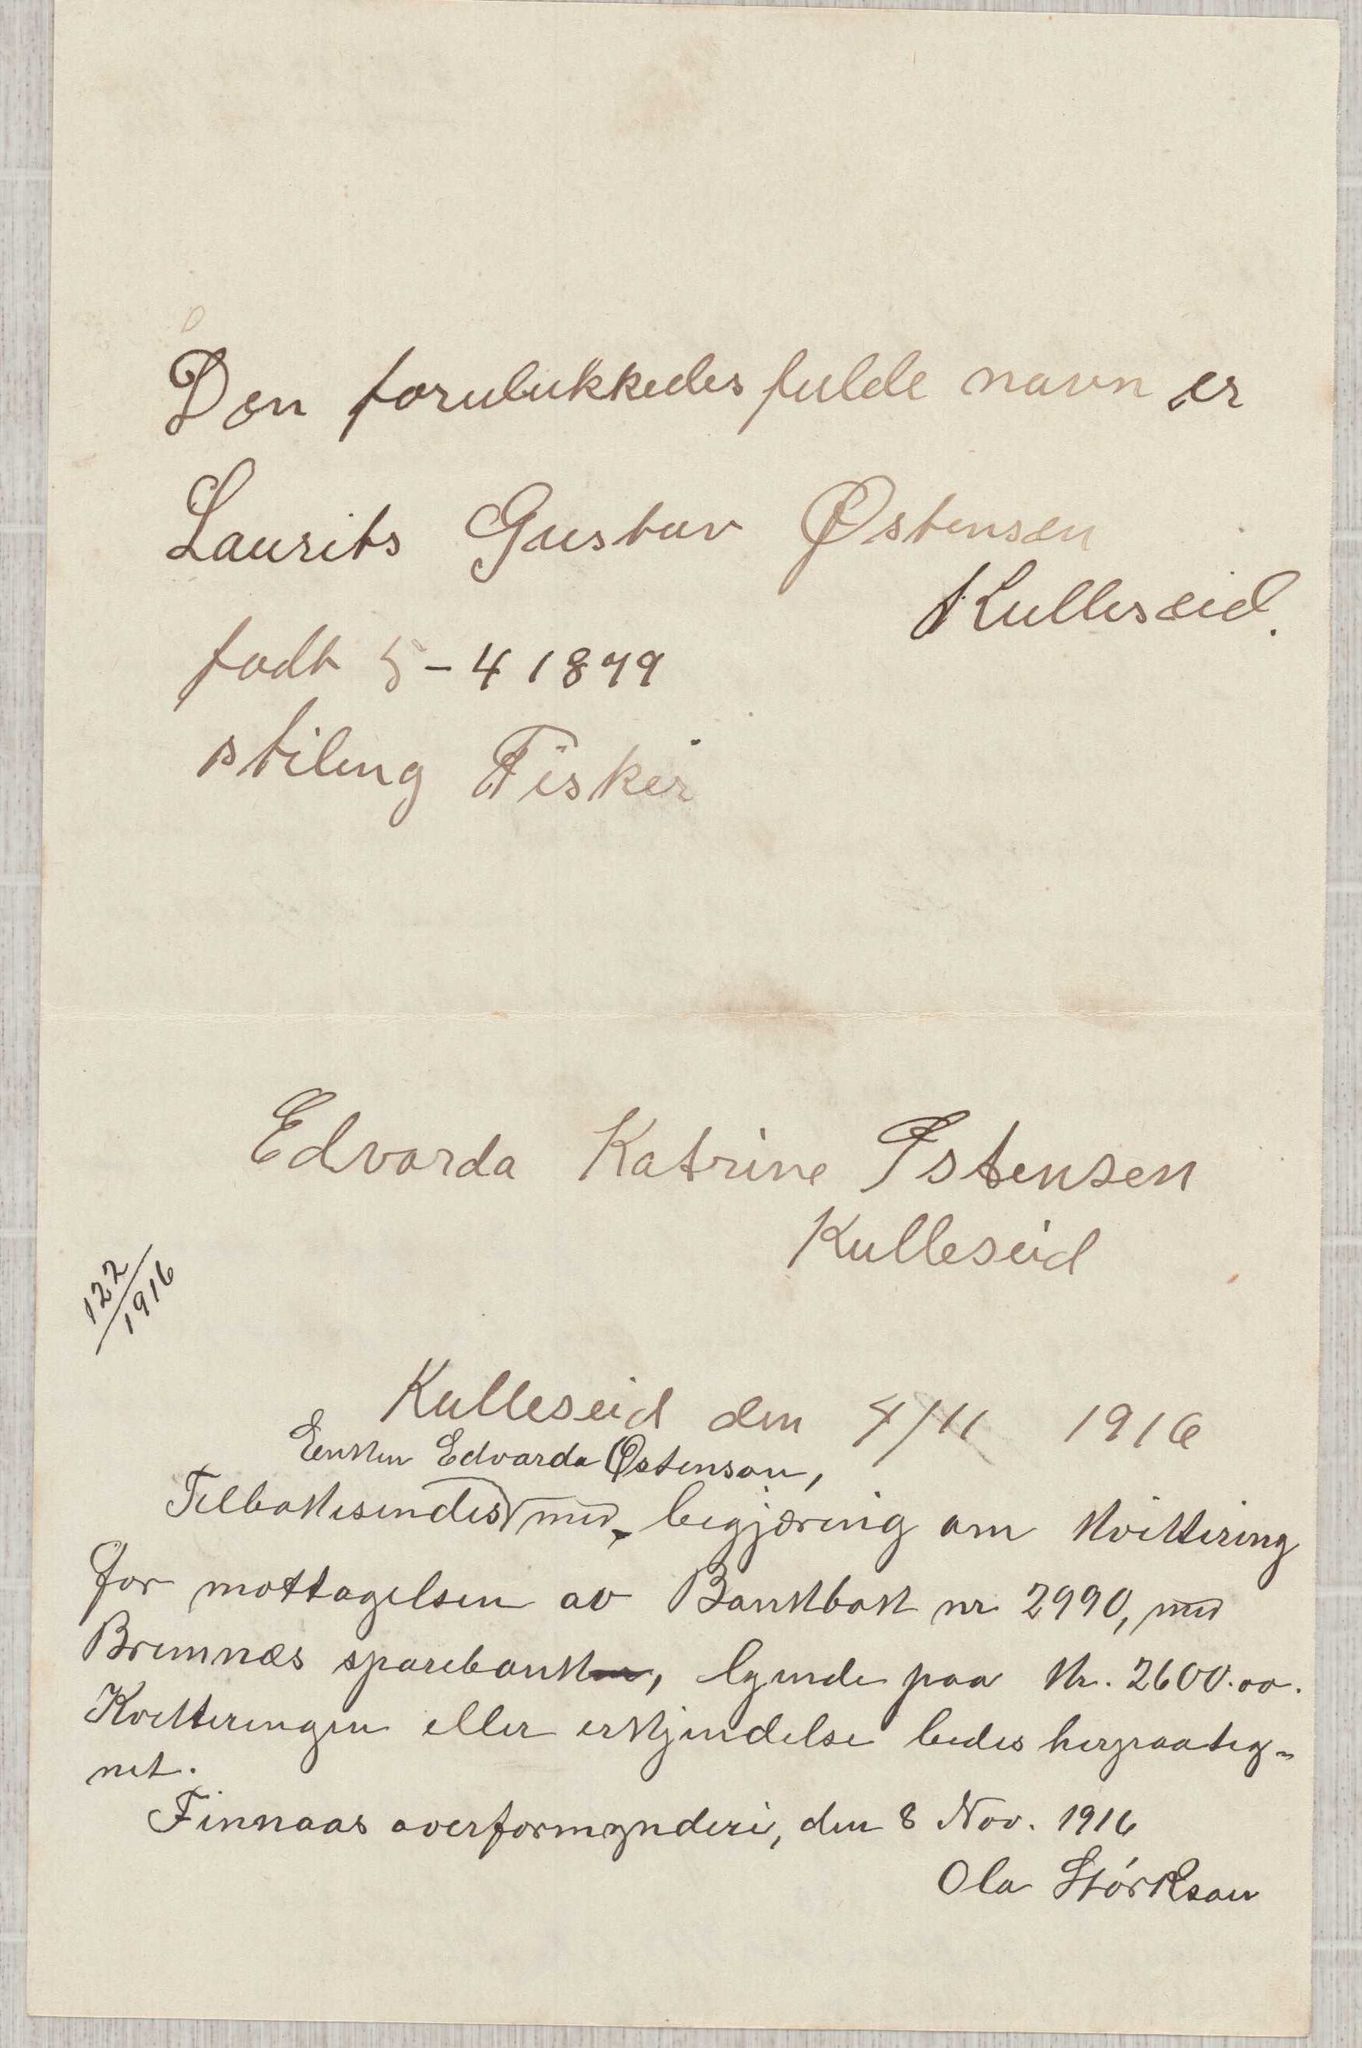 Den forulukkedes fulde navn er
Laurits Gustav Østensen
Kulleseid.
født 5-4 1879
stiling Fisker
Edvarda Katrine Østensen
Kulleseid
122/1916
Kulleseid den 4/11 1916
Enken Edvarda Østenson,
Tilbakesendes med begjæring om kvittering
for mottagelsen av Bankbok nr 2990, med
Bremnæs sparebank, lynde paa kr. 2600.00.
Kvitteringen eller erkjendelse bedes herpaateg-
net.
Finnaas overformynderi, den 8 Nov. 1916
Ola Størkson